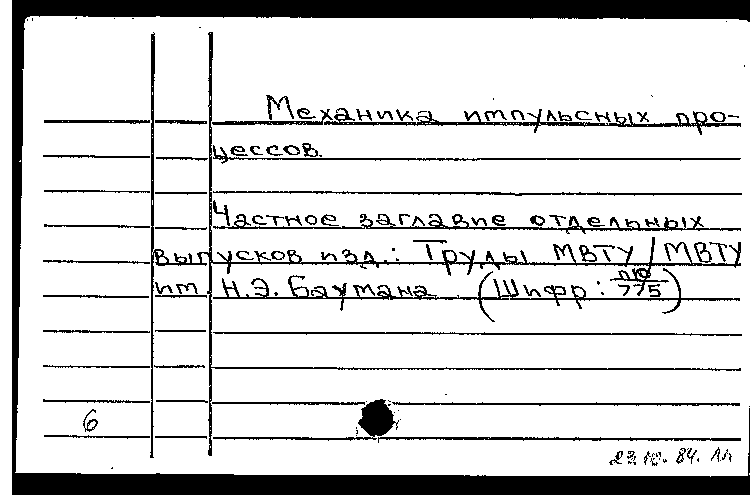 Механика импульсных про-
цессов.
Частное заглавие отдельных
выпусков изд.: Труды МВТУ / МВТУ
им. Н.Э. Баумана (Шифр: П10/775)
6
23.10.84.